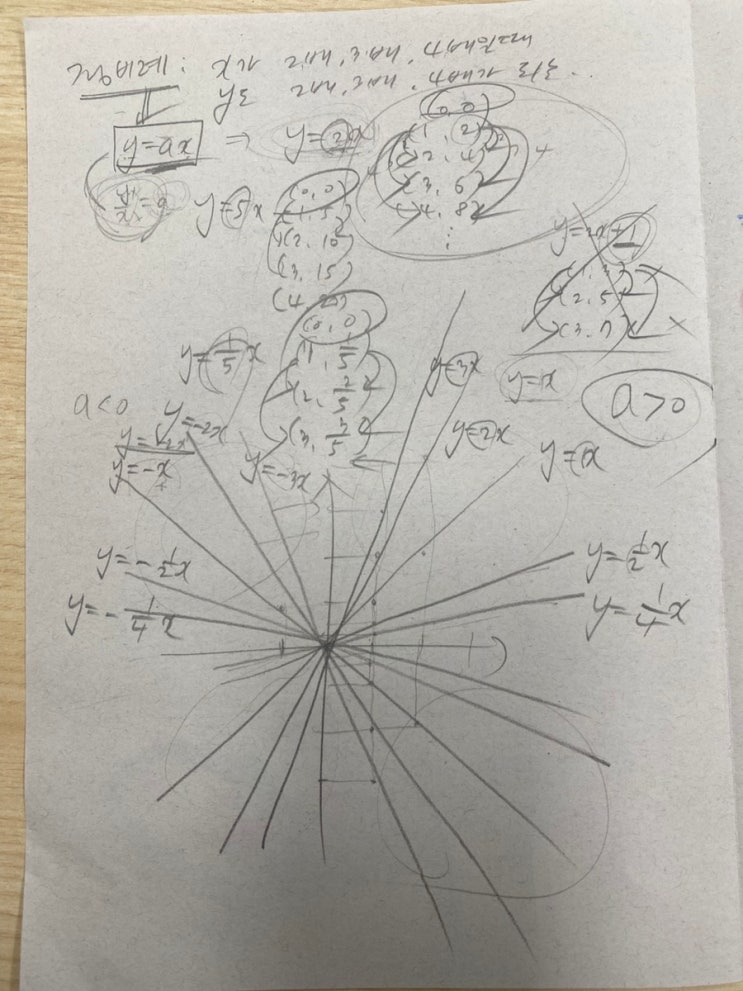 정비례 : x가 2배, 3배, 4배
y도 2배, 3배, 4배가 되는..
y=ax ⇒ y=2x
(0, 0)
(1, 2)
(2, 4)
(3, 6)
(4, 8)
⋮
y/x=a
y=5x
(0, 0)
(1, 5)
(2, 10)
(3, 15)
(4, 20)
y=2x+1
(1, 3)
(2, 5)
(3, 7)
y=1/5x
(0, 0)
(1, 1/5)
(2, 2/5)
(3, 3/5)
y=3x
y=x
a>0
a<0
y=-2x
y=-2x
y=-x
y=-3x
y=2x
y=x
y=-1/2x
y=1/2x
y=-1/4x
y=1/4x